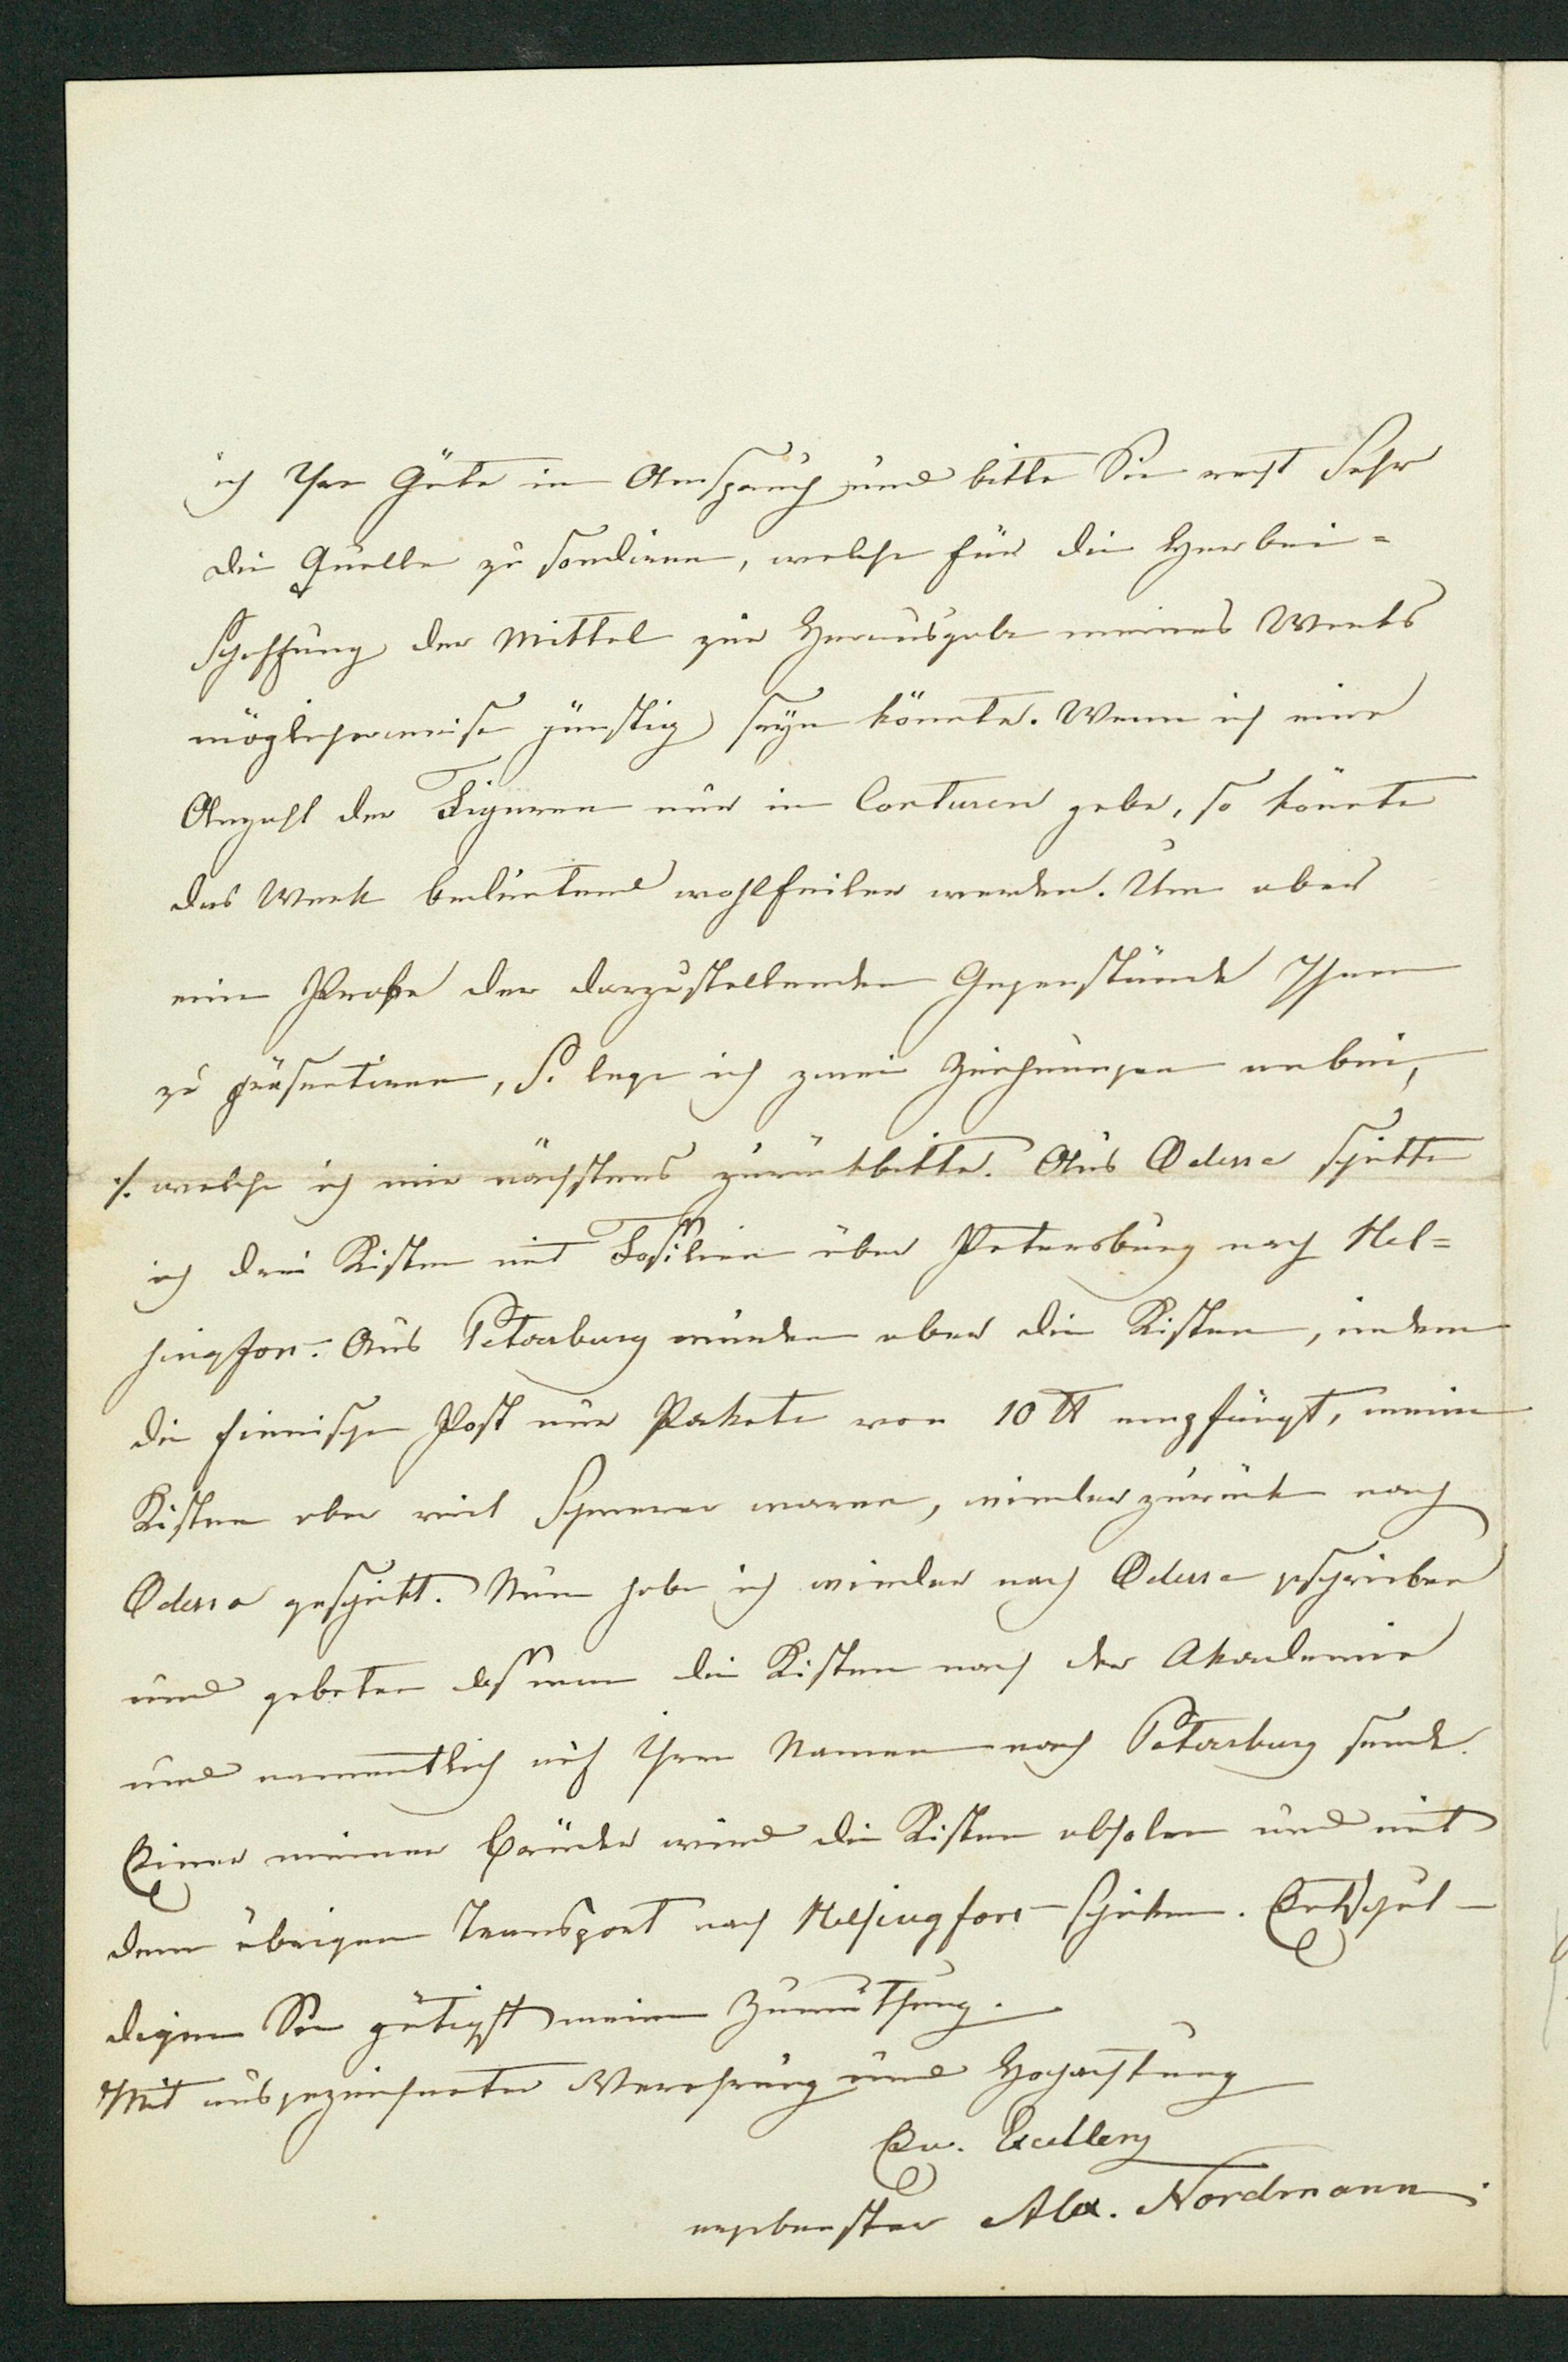 ich Ihre Güte in Anspruch und bitte Sie recht sehr
die Quelle zu sondiren, welche für die Herbei=
schaffung der Mittel zur Herausgabe meines Werks
möglicherweise günstig seyn könnte. Wenn ich eine
Anzahl der Figuren nur in Conturen gebe, so könnte
das Werk bedeutend wohlfeiler werden. Um aber
eine Probe der darzustellenden Gegenstände Ihnen
zu präsentiren, so lege ich zwei Zeichnungen anbei,
./. welche ich mir nächstens zurückbitte. Aus Odessa schikte
ich drei Kisten mit Fossilien über Petersburg nach Hel=
singfors. Aus Petersburg wurden aber die Kisten, indem
die finnische Post nur Pakete von 10 ℔ empfängt, meine
Kisten aber viel schwerer waren, wieder zurück nach
Odessa geschikt. Nun habe ich wieder nach Odessa geschrieben
und gebeten daß man die Kisten nach der Akademie
und namentlich auf Ihren Namen nach Petersburg sende.
Einer meiner Brüder wird die Kisten abholen und mit
dem übrigen Transport nach Helsingfors schiken. Entschul-
digen Sie gütigst meine Zumuthung.
Mit ausgezeichneter Verehrung und Hochachtung
Ew. Excellenz
ergebenster Alex. Nordmann.